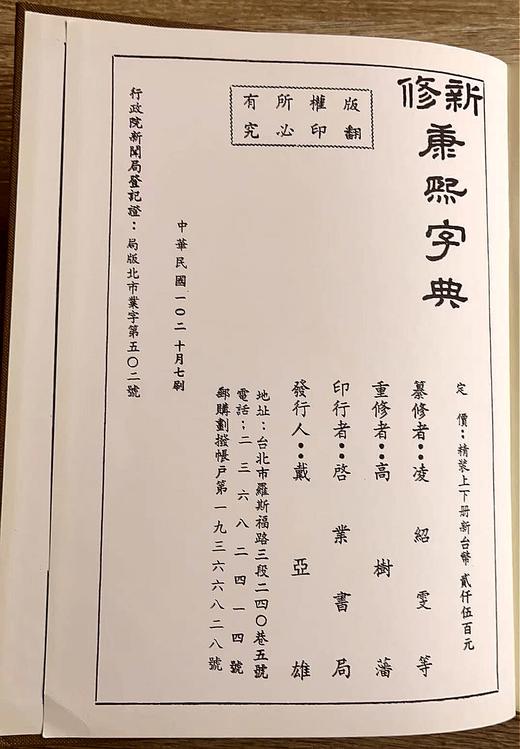 新修
康熙字典
定 價：精裝上下册新台幣 貳仟伍百元
纂修者：凌紹雯等
重修者：高樹藩
印行者：啓業書局
發行人：戴亞雄
地址：台北市羅斯福路三段二四〇巷五號
電話：二三六八二四一四號
郵購劃撥帳戶第一九三六六八二八號
版權所有
翻印必究
中華民國一〇二十月七刷
行政院新聞局登記證：局版北市業字第五〇二號